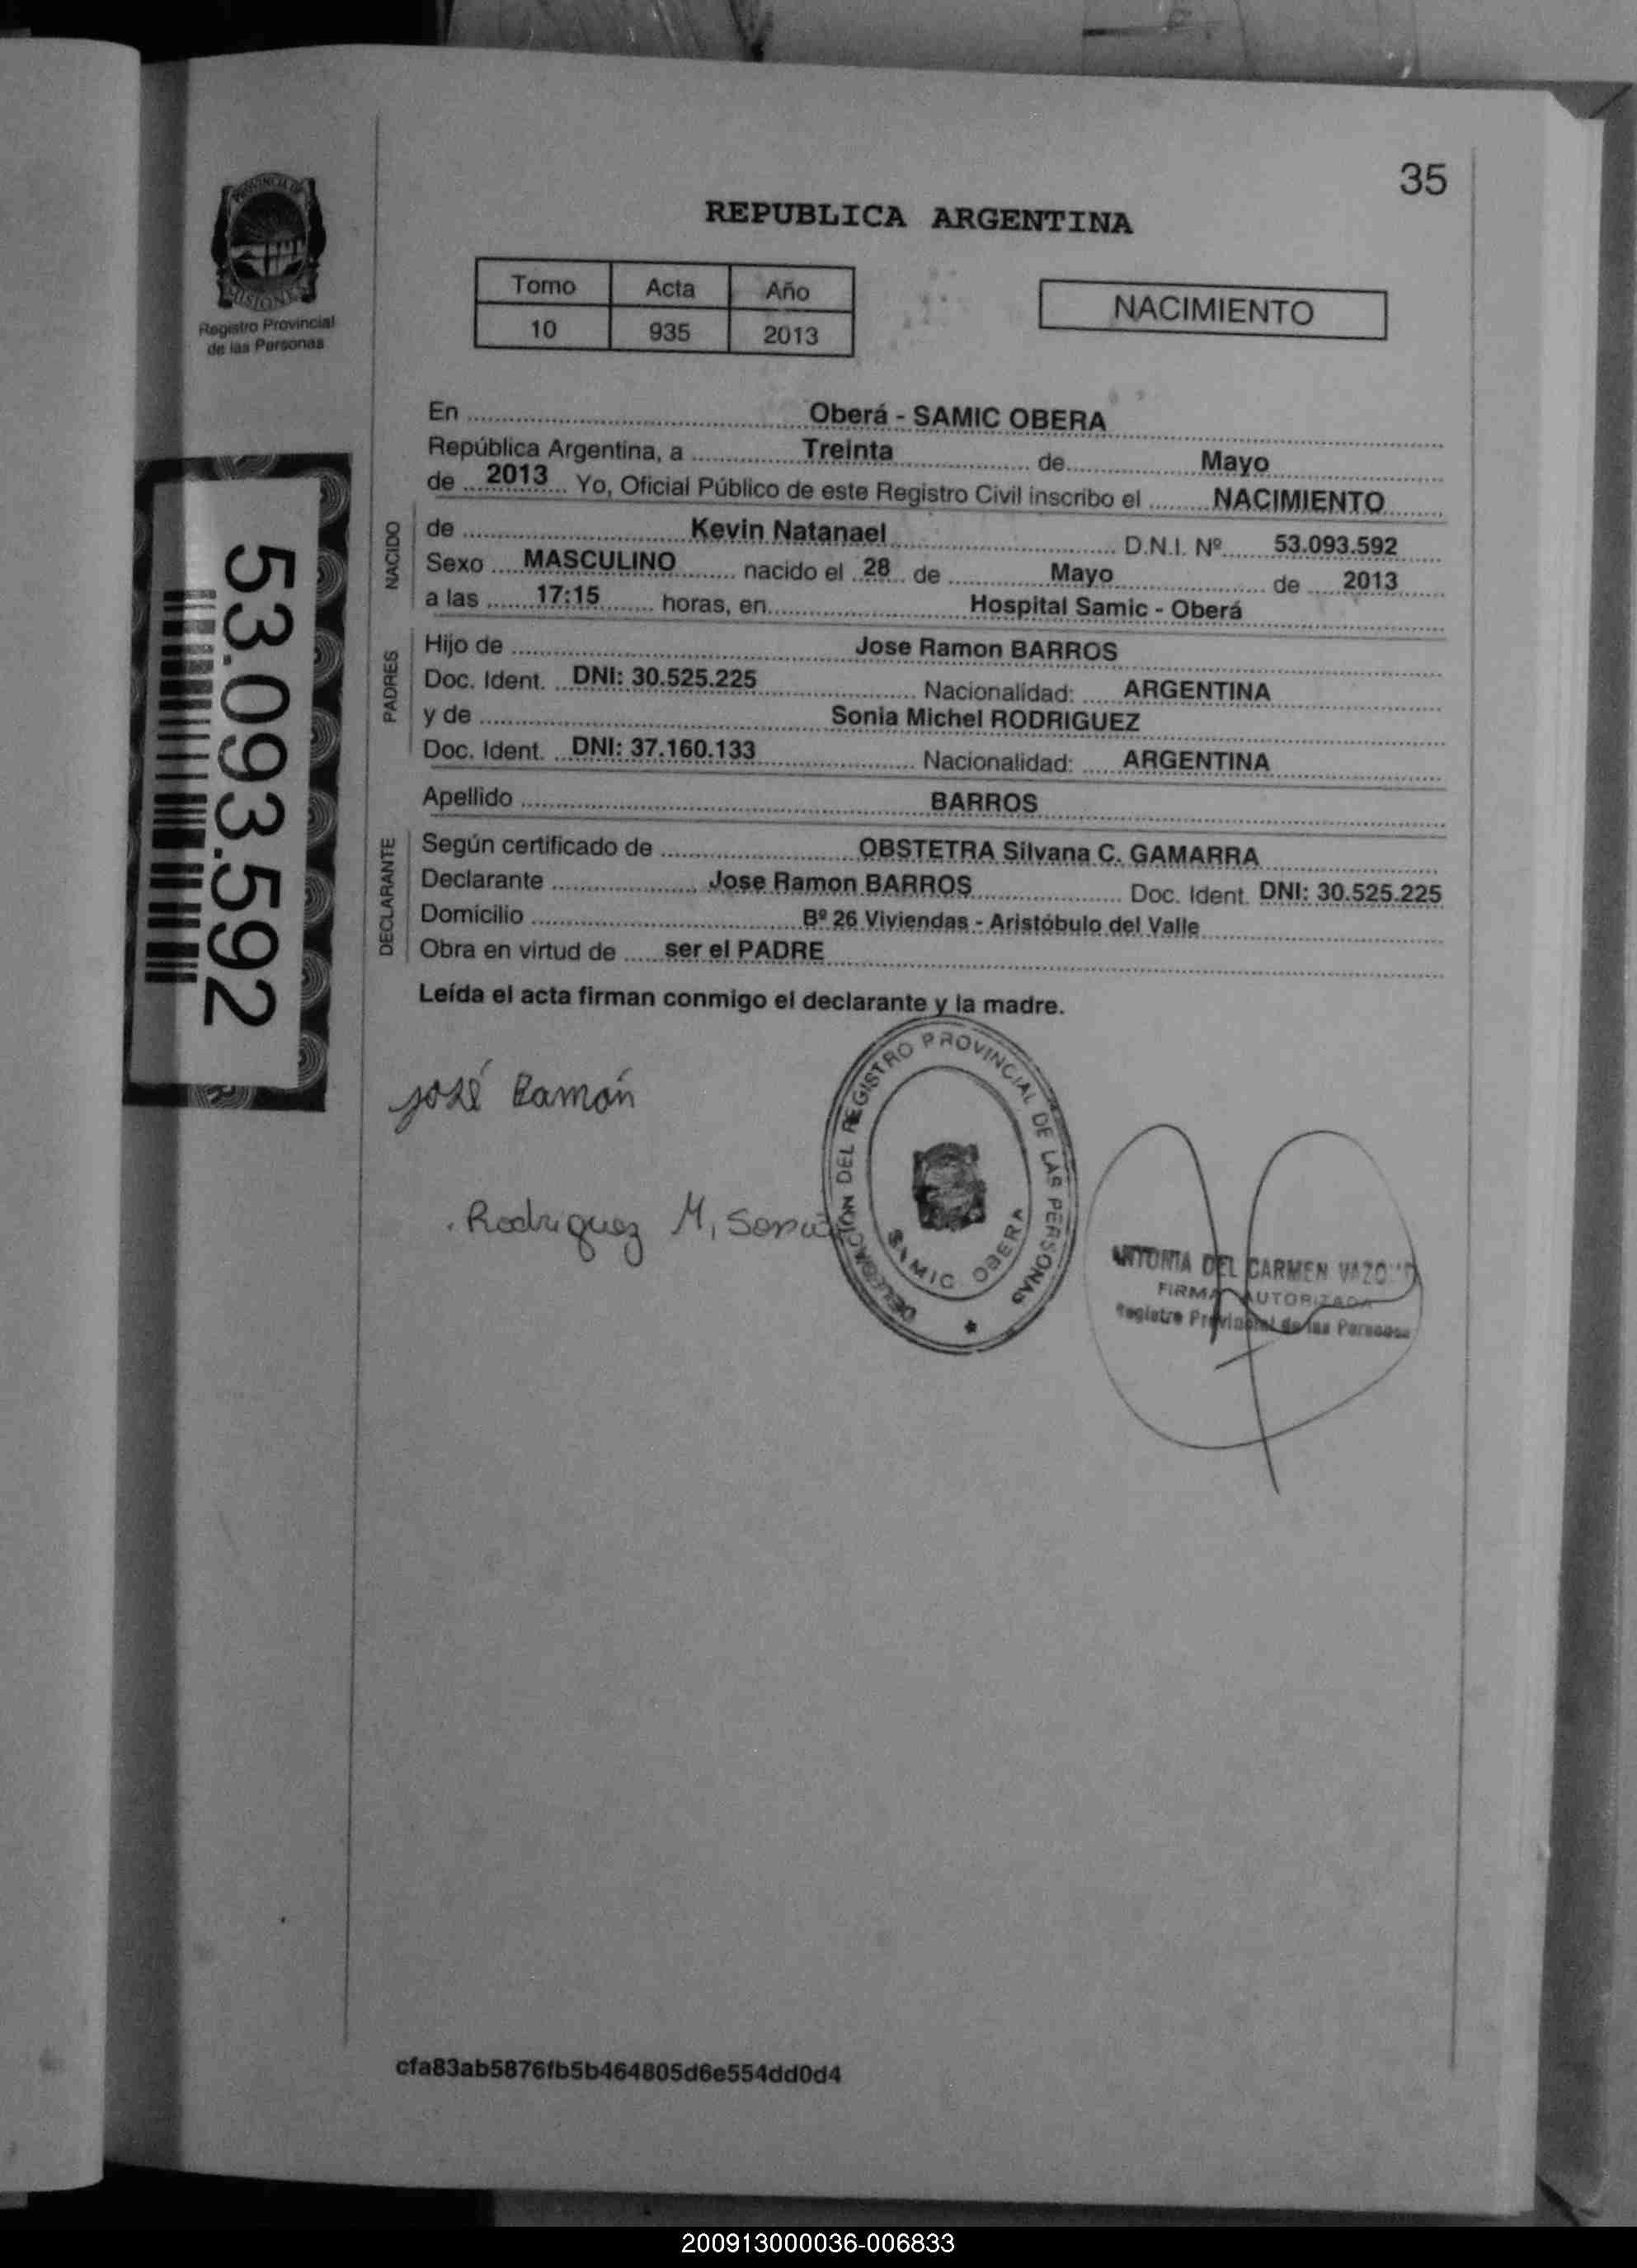 35
REPUBLICA ARGENTINA
PROVINCIA DE MISIONES
Registro Provincial
de las Personas
Tomo Acta Año
10 935 2013
NACIMIENTO
En Oberá - SAMIC OBERA
República Argentina, a Treinta de Mayo
de 2013 Yo, Oficial Público de este Registro Civil inscribo el NACIMIENTO
NACIDO
de Kevin Natanael D.N.I. Nº 53.093.592
Sexo MASCULINO nacido el 28 de Mayo de 2013
a las 17:15 horas, en Hospital Samic - Oberá
PADRES
Hijo de Jose Ramon BARROS
Doc. Ident. DNI: 30.525.225 Nacionalidad: ARGENTINA
y de Sonia Michel RODRIGUEZ
Doc. Ident. DNI: 37.160.133 Nacionalidad: ARGENTINA
Apellido BARROS
DECLARANTE
Según certificado de OBSTETRA Silvana C. GAMARRA
Declarante Jose Ramon BARROS Doc. Ident. DNI: 30.525.225
Domicilio Bº 26 Viviendas - Aristóbulo del Valle
Obra en virtud de ser el PADRE
Leída el acta firman conmigo el declarante y la madre.
53.093.592
José Ramón
Rodriguez M, Sonia
DELEGACION DEL REGISTRO PROVINCIAL DE LAS PERSONAS
SAMIC OBERA
ANTONIA DEL CARMEN
FIRMA AUTORIZADA
Registro Provincial de las Personas
cfa83ab5876fb5b464805d6e554dd0d4
200913000036-006833